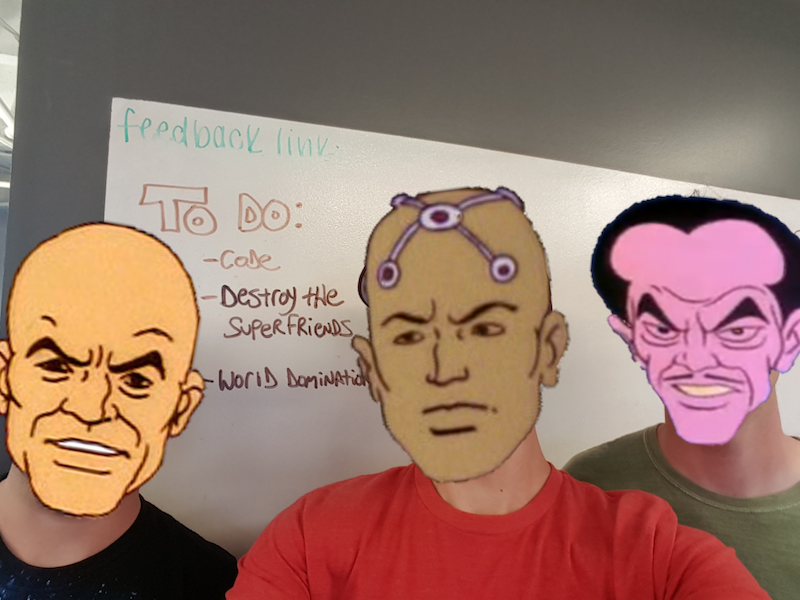 feedback link:
To Do:
- Code
- Destroy the
SuperFriends
- World Domination